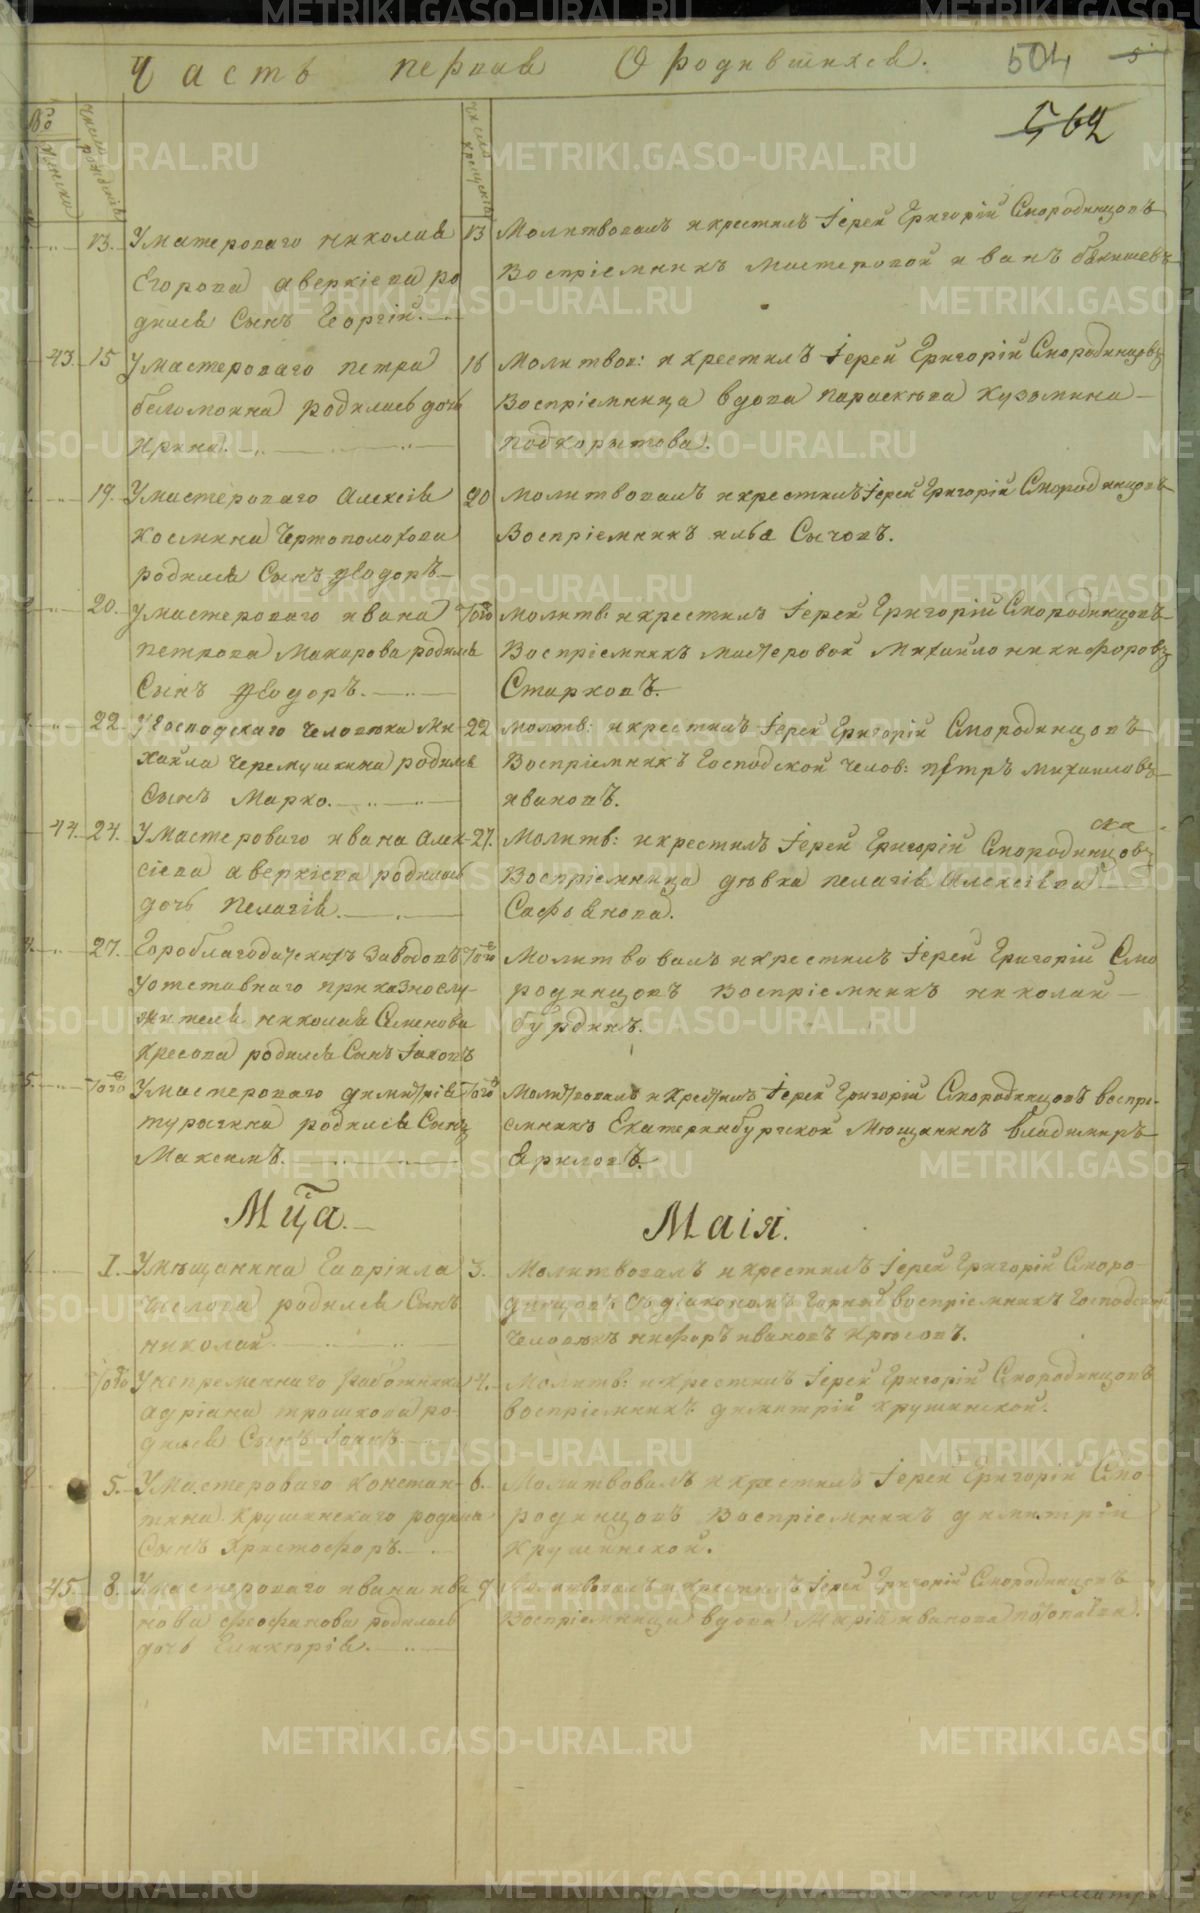 Часть первая О родившихся.
504
5
562
Во
Женска
Число рожденія
Число крещенія
13. У мастероваго Николая 13 Молитвовалъ и крестилъ Іерей Григорій Смородинцовъ
Егорова Аверкіева ро Воспріемникъ мастеровой Иванъ
дился Сынъ Георгій.
43. 15 У мастероваго петра 16 Молитвов: и крестилъ Іерей Григорій Смородинцовъ
беломоина родилась дочь Воспріемница вдова параскева Кузьмина
Ирина. подкорытова.
19. У мастероваго Алексія 20 Молитвовалъ и крестилъ Іерей Григорій Смородинцовъ
Космина Чертополохова Воспріемникъ илья Сычовъ.
родился Сынъ Ѳеодоръ
20. У мастероваго ивана Того Молитв: и крестилъ Іерей Григорій Смородинцовъ
петрова Макарова родился Воспріемникъ мастеровой Михайло никифоровъ
Сынъ Ѳеодоръ. Старковъ.
22 У Господскаго Человека Ми- 22 Молитв: и крестилъ Іерей Григорій Смородинцовъ
хаила Черемушкина родился Воспріемникъ Господской челов: пётръ михаиловъ
Сынъ Марко. ивановъ.
44. 24. У Мастероваго ивана Алек- 27. Молитв: и крестилъ Іерей Григорій Смородинцовъ
сіева аверкіева родилась Воспріемница девка пелагія Алексіева
дочь Пелагія. Сафоянова.
27. Гороблагодатскихъ Заводовъ Того Молитвовалъ и крестилъ Іерей Григорій Смо
У отставнаго приказнослу- родинцовъ воспріемникъ николай
жителя николая Семенова бурдинъ.
Кресова родился Сынъ Іаковъ
Того У мастероваго димитрія Того Молитвовалъ и крестилъ Іерей Григорій Смородинцовъ воспрі-
турыгина родился Сынъ емникъ Екатеринбургской Мещанинъ владимиръ
Максимъ. Яриловъ.
Мца. Маія.
1. У мещанина Гавріила 3. Молитвовалъ и крестилъ Іерей Григорій Сморо-
родился Сынъ динцовъ Съ діакономъ воспріемникъ Господской
николай. Человекъ ивановъ
Того У непременнаго работника 4. Молитв: и крестилъ Іерей Григорій Смородинцовъ
Адріана трошкова ро- воспріемникъ димитрій крушинской.
дился Сынъ Іоаннъ.
5. У Мастероваго Констан- 6. Молитвовалъ и крестилъ Іерей Григорій Смо-
тина Крушинскаго родился родинцовъ Воспріемникъ димитрій
Сынъ Христофоръ. Крушинской.
45. 8. У мастероваго ивана ива 9 Молитвовалъ и крестилъ Іерей Григорій Смородинцовъ
нова феофанова родилась Воспріемница вдова Марія иванова
дочь Гликерія.
METRIKI.GASO-URAL.RU